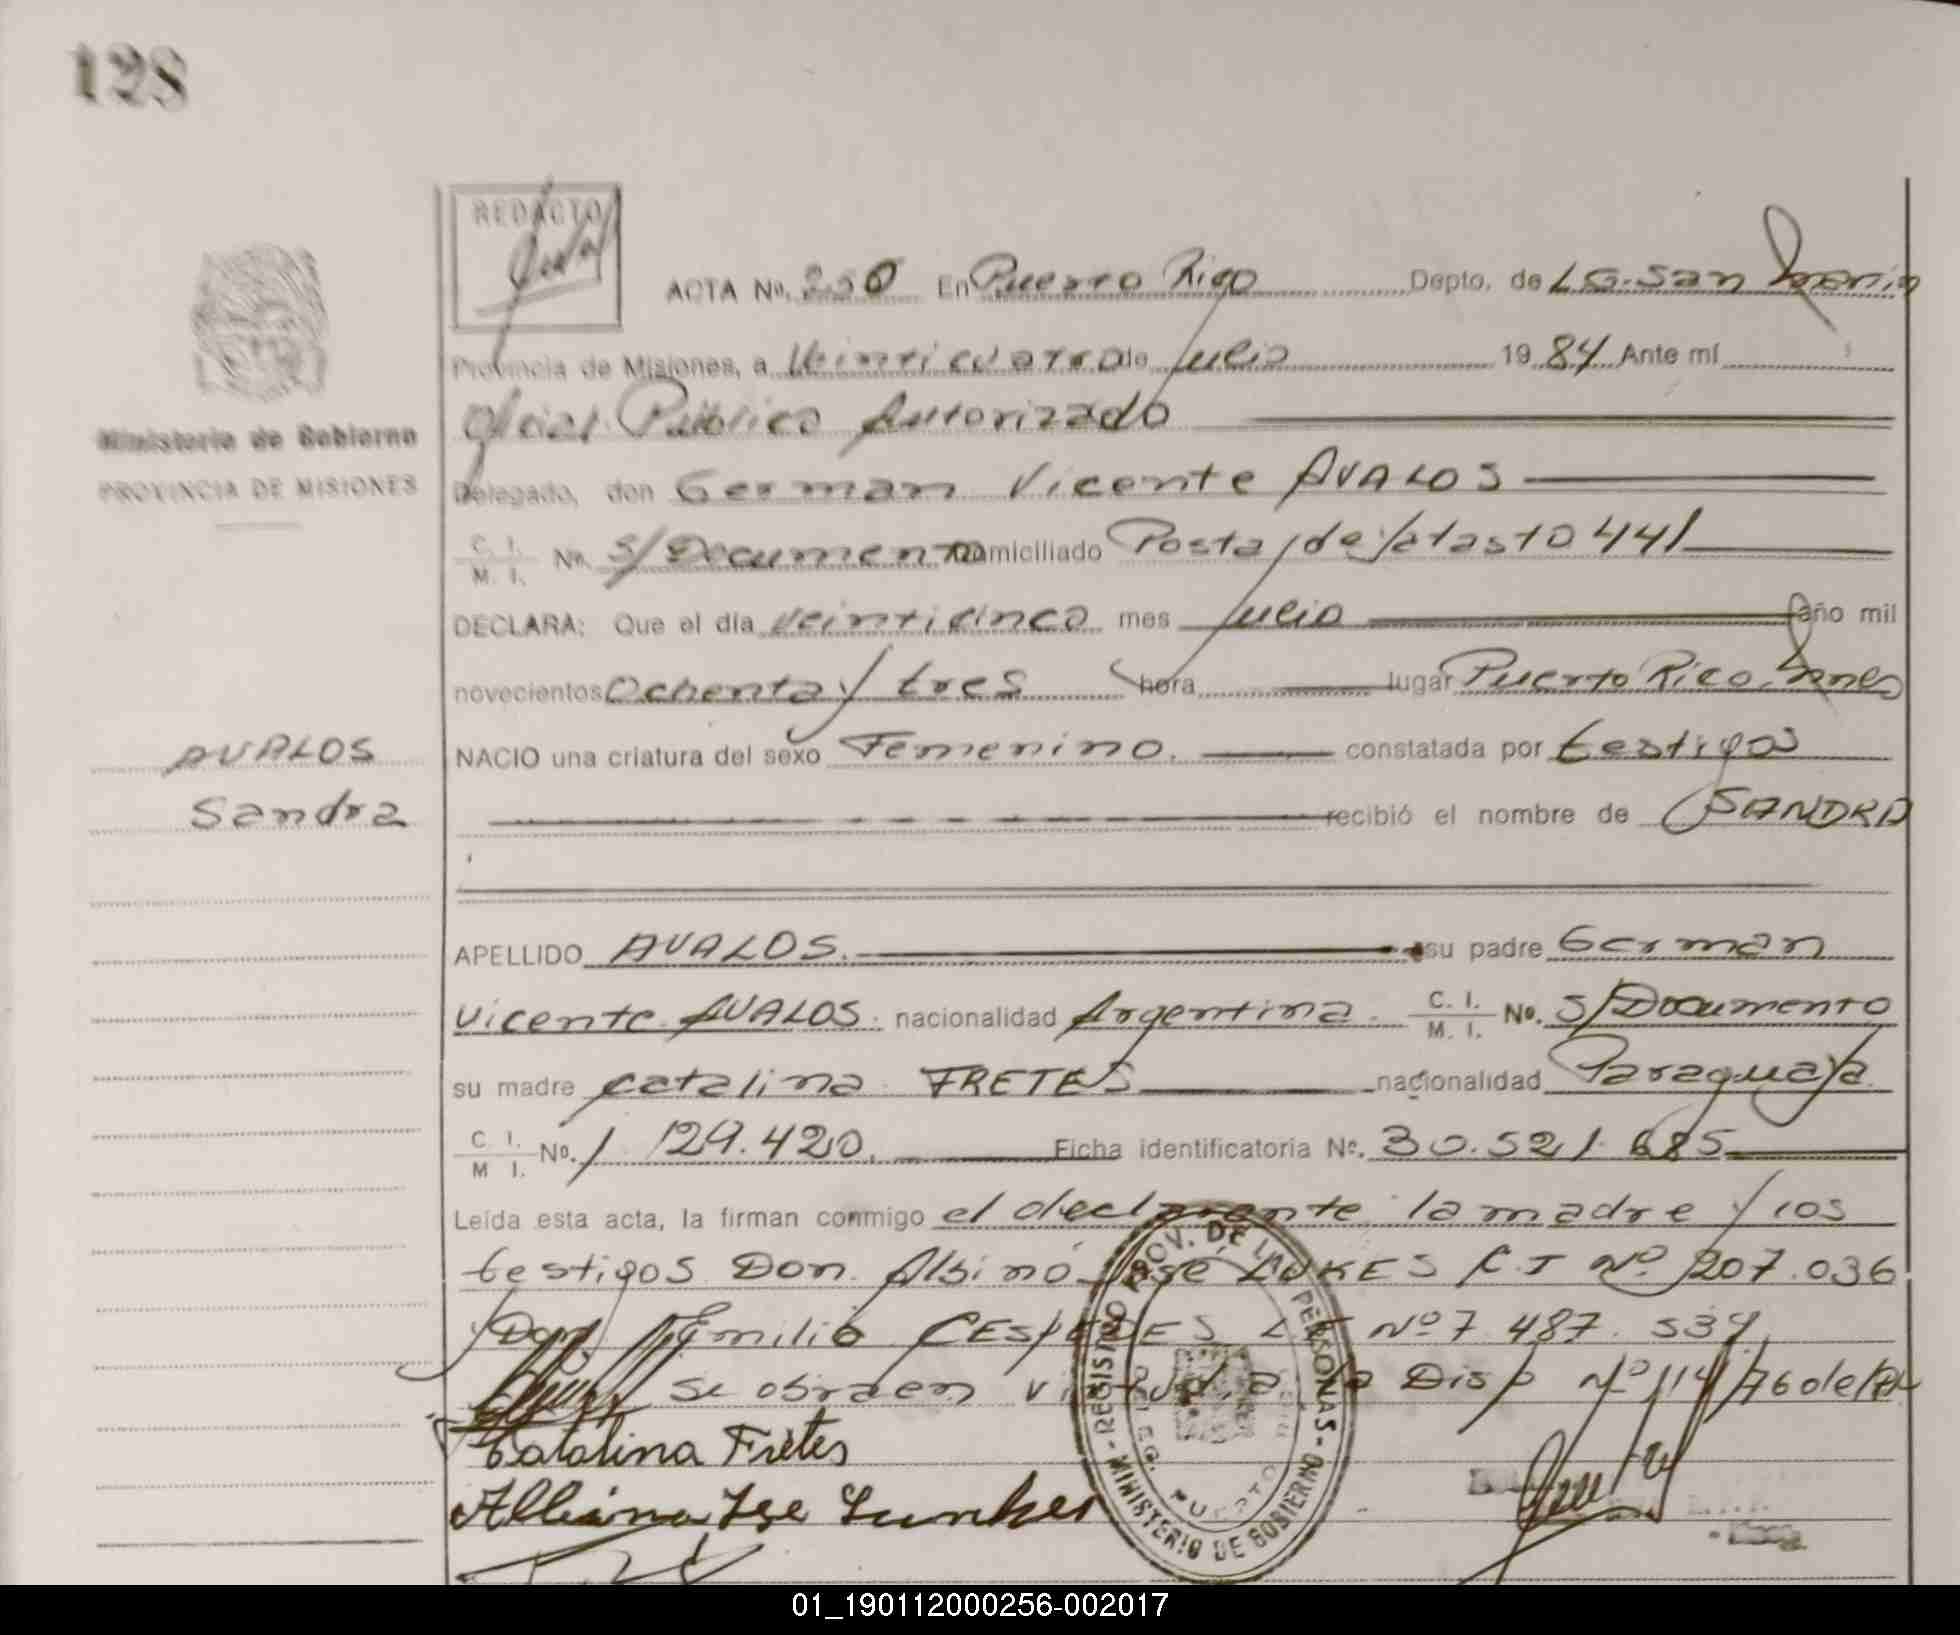 128
REDACTO
ACTA No. 250 En Puerto Rico Depto. de Lb. San Martin
Provincia de Misiones, a Veinticuatro de Julio 1984 Ante mí
Oficial Público Autorizado
Ministerio de Gobierno
PROVINCIA DE MISIONES
Delegado, don German Vicente AVALOS
C. I. M. I. No. S/Documento Domiciliado Posta de Yatasto 441
DECLARA: Que el día Veinticinco mes Julio año mil
novecientos Ochenta y tres hora lugar Puerto Rico, Mnes
AVALOS
NACIO una criatura del sexo Femenino. constatada por testigos
Sandra
recibió el nombre de SANDRA
APELLIDO AVALOS. su padre German
Vicente AVALOS. nacionalidad Argentina. C. I. M. I. No. S/Documento
su madre Catalina FRETES nacionalidad Paraguaya
C. I. M I. No. 1 129.420. Ficha identificatoria No. 30.521.685
Leída esta acta, la firman conmigo el declarante la madre y los
testigos Don. Albino José LUKES C.I Nº 207.036
y Don Emilio CESPEDES L.E Nº 7.487.534,
se obra en virtud a la Disp Nº 114/76 de/84
Catalina Fretes
REGISTRO PROV. DE LAS PERSONAS - MINISTERIO DE GOBIERNO -
DELEG. PUERTO
01_190112000256-002017